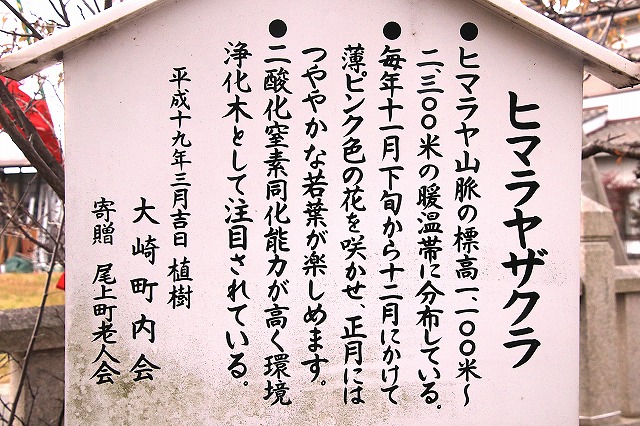 ヒマラヤザクラ
●ヒマラヤ山脈の標高一、一〇〇米～
二、三〇〇米の暖温帯に分布している。
●毎年十一月下旬から十二月にかけて
薄ピンク色の花を咲かせ、正月には
つややかな若葉が楽しめます。
●二酸化窒素同化能力が高く環境
浄化木として注目されている。
平成十九年三月吉日 植樹
大崎町内会
寄贈 尾上町老人会